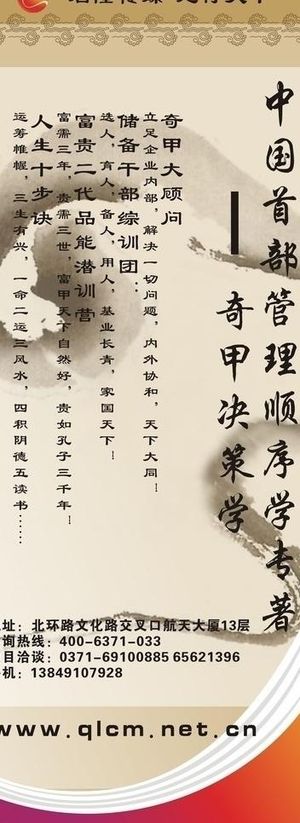 中国首部管理顺序学专著
—奇甲决策学
奇甲大顾问
立足企业内部，解决一切问题，内外协和，天下大同！
储备干部综训团：
选人，育人，备人，用人，基业长青，家国天下！
富贵二代品能潜训营
富需三年，贵需三世，富甲天下自然好，贵如孔子三千年！
人生十步诀
运筹帷幄，三生有兴，一命二运三风水，四积阴德五读书……
址：北环路文化路交叉口航天大厦13层
询热线：400-6371-033
目洽谈：0371-69100885 65621396
机：13849107928
www.qlcm.net.cn